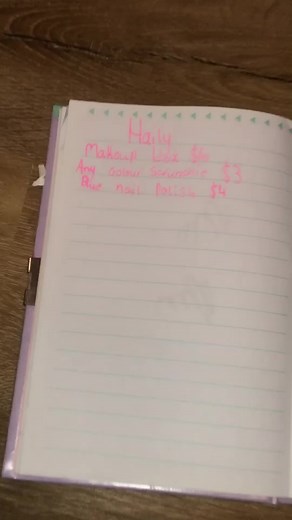 Haily
Makeup $6
Any colour Scrunchie $3
nail Polish $4